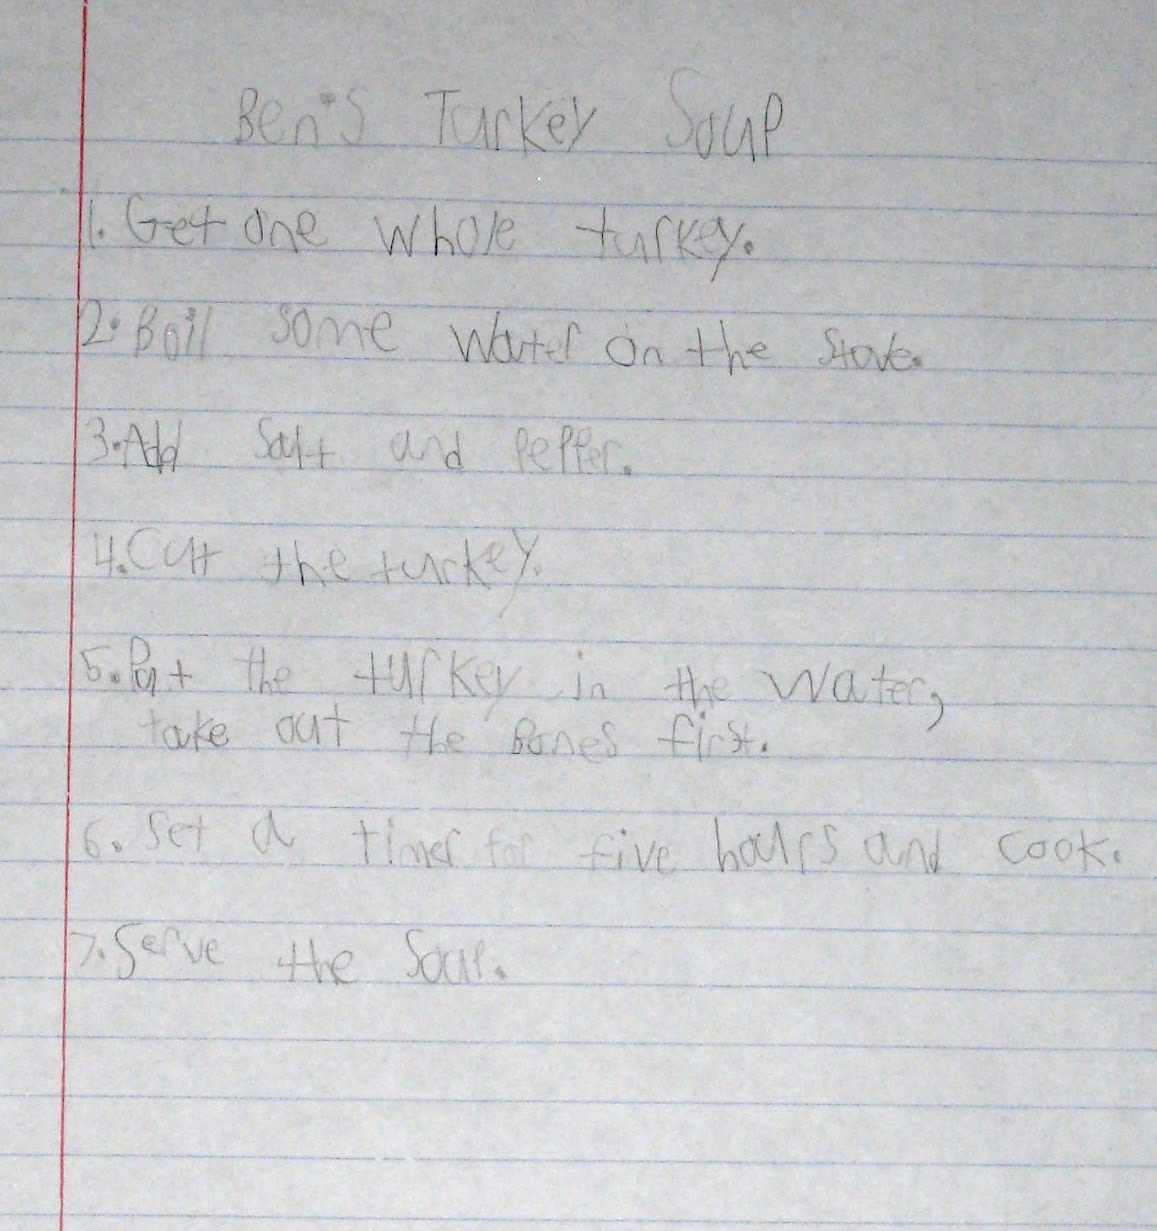 Ben's Turkey Soup
1. Get one whole turkey.
2. Boil some water on the stove.
3. Add Salt and pepper.
4. Cut the turkey.
5. Put the turkey in the water,
take out the Bones first.
6. Set a timer for five hours and cook.
7. Serve the Soup.